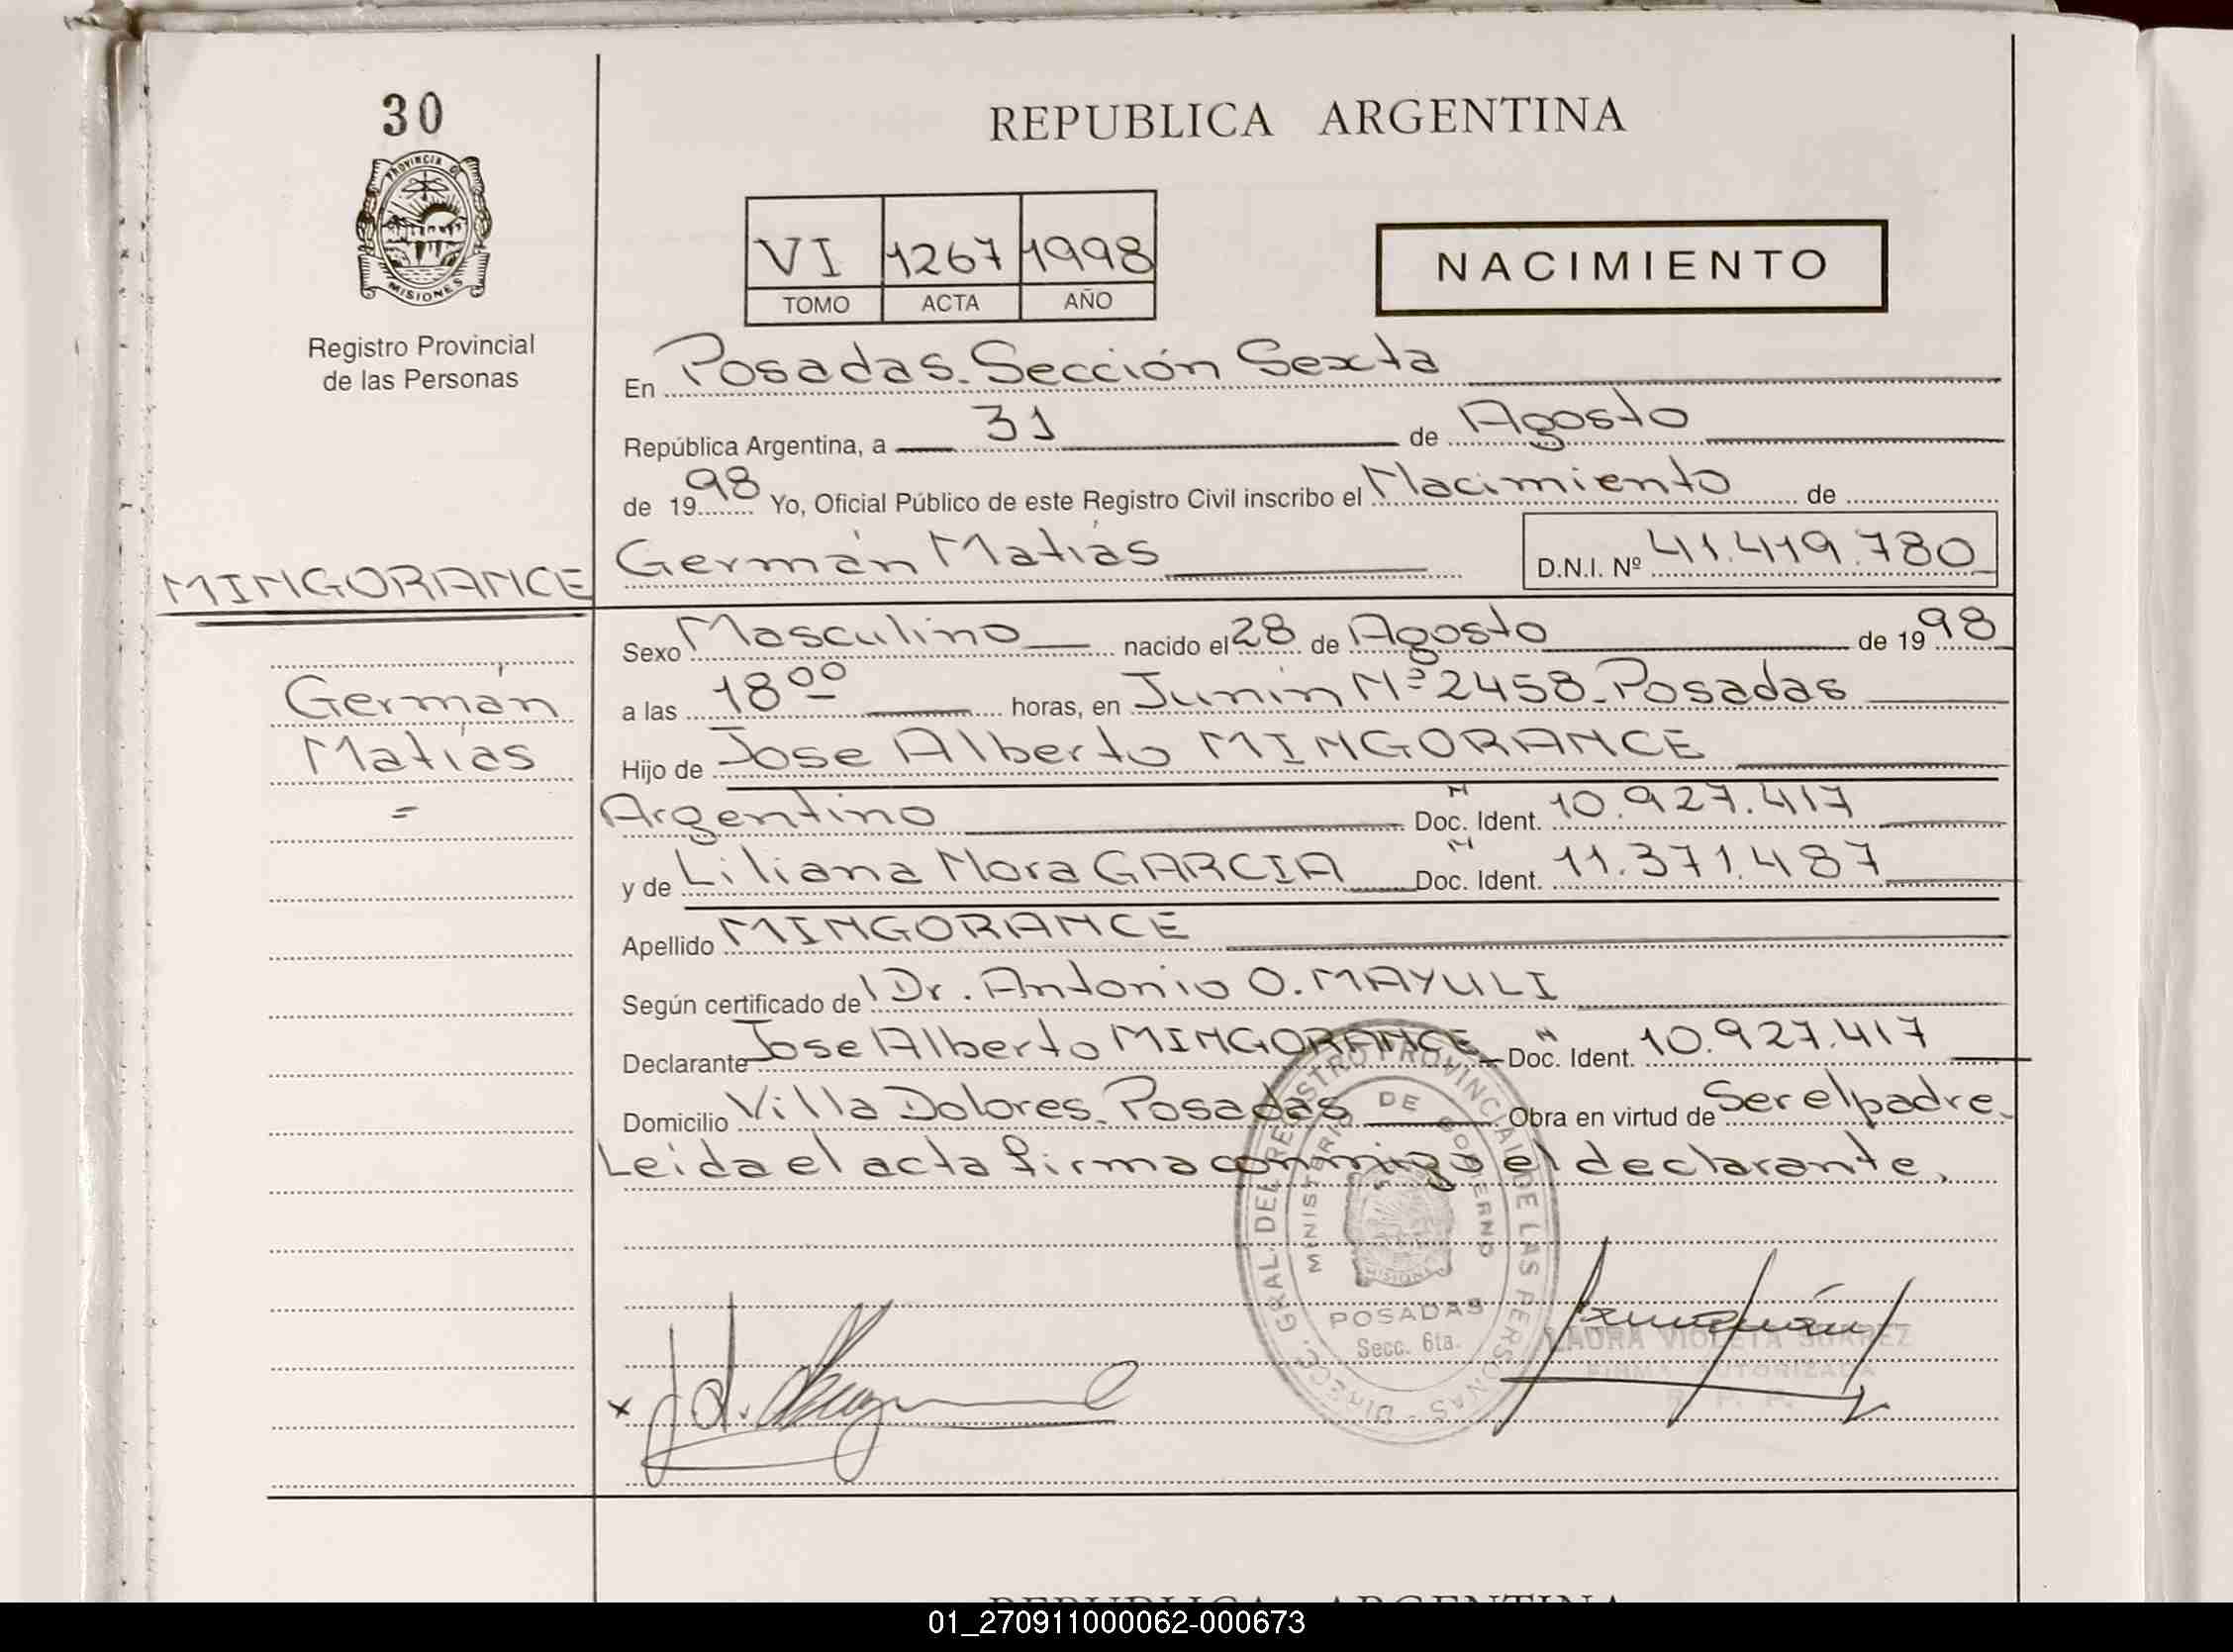 30
PROVINCIA DE
MISIONES
Registro Provincial
de las Personas
REPUBLICA ARGENTINA
VI 1267 1998
TOMO ACTA AÑO
NACIMIENTO
En Posadas. Sección Sexta
República Argentina, a 31 de Agosto
de 1998 Yo, Oficial Público de este Registro Civil inscribo el Nacimiento de
Germán Matías D.N.I. Nº 41.419.780
MINGORANCE
Germán
Matías
=
Sexo Masculino nacido el 28 de Agosto de 1998
a las 18 00 horas, en Junín Nº 2458. Posadas
Hijo de Jose Alberto MINGORANCE
Argentino N Doc. Ident. 10.927.417
y de Liliana Nora GARCIA N Doc. Ident. 11.371.487
Apellido MINGORANCE
Según certificado de Dr. Antonio O. MAYULI
Declarante Jose Alberto MINGORANCE N Doc. Ident. 10.927.417
Domicilio Villa Dolores. Posadas Obra en virtud de Ser el padre.
Leída el acta firma conmigo el declarante.
DIRECC. GRAL. DEL REGISTRO PROVINCIAL DE LAS PERSONAS
MINISTERIO DE GOBIERNO
MISIONES
POSADAS
Secc. 6ta.
LAURA VIOLETA SUAREZ
FIRMA AUTORIZADA
REPUBLICA ARGENTINA
01_270911000062-000673